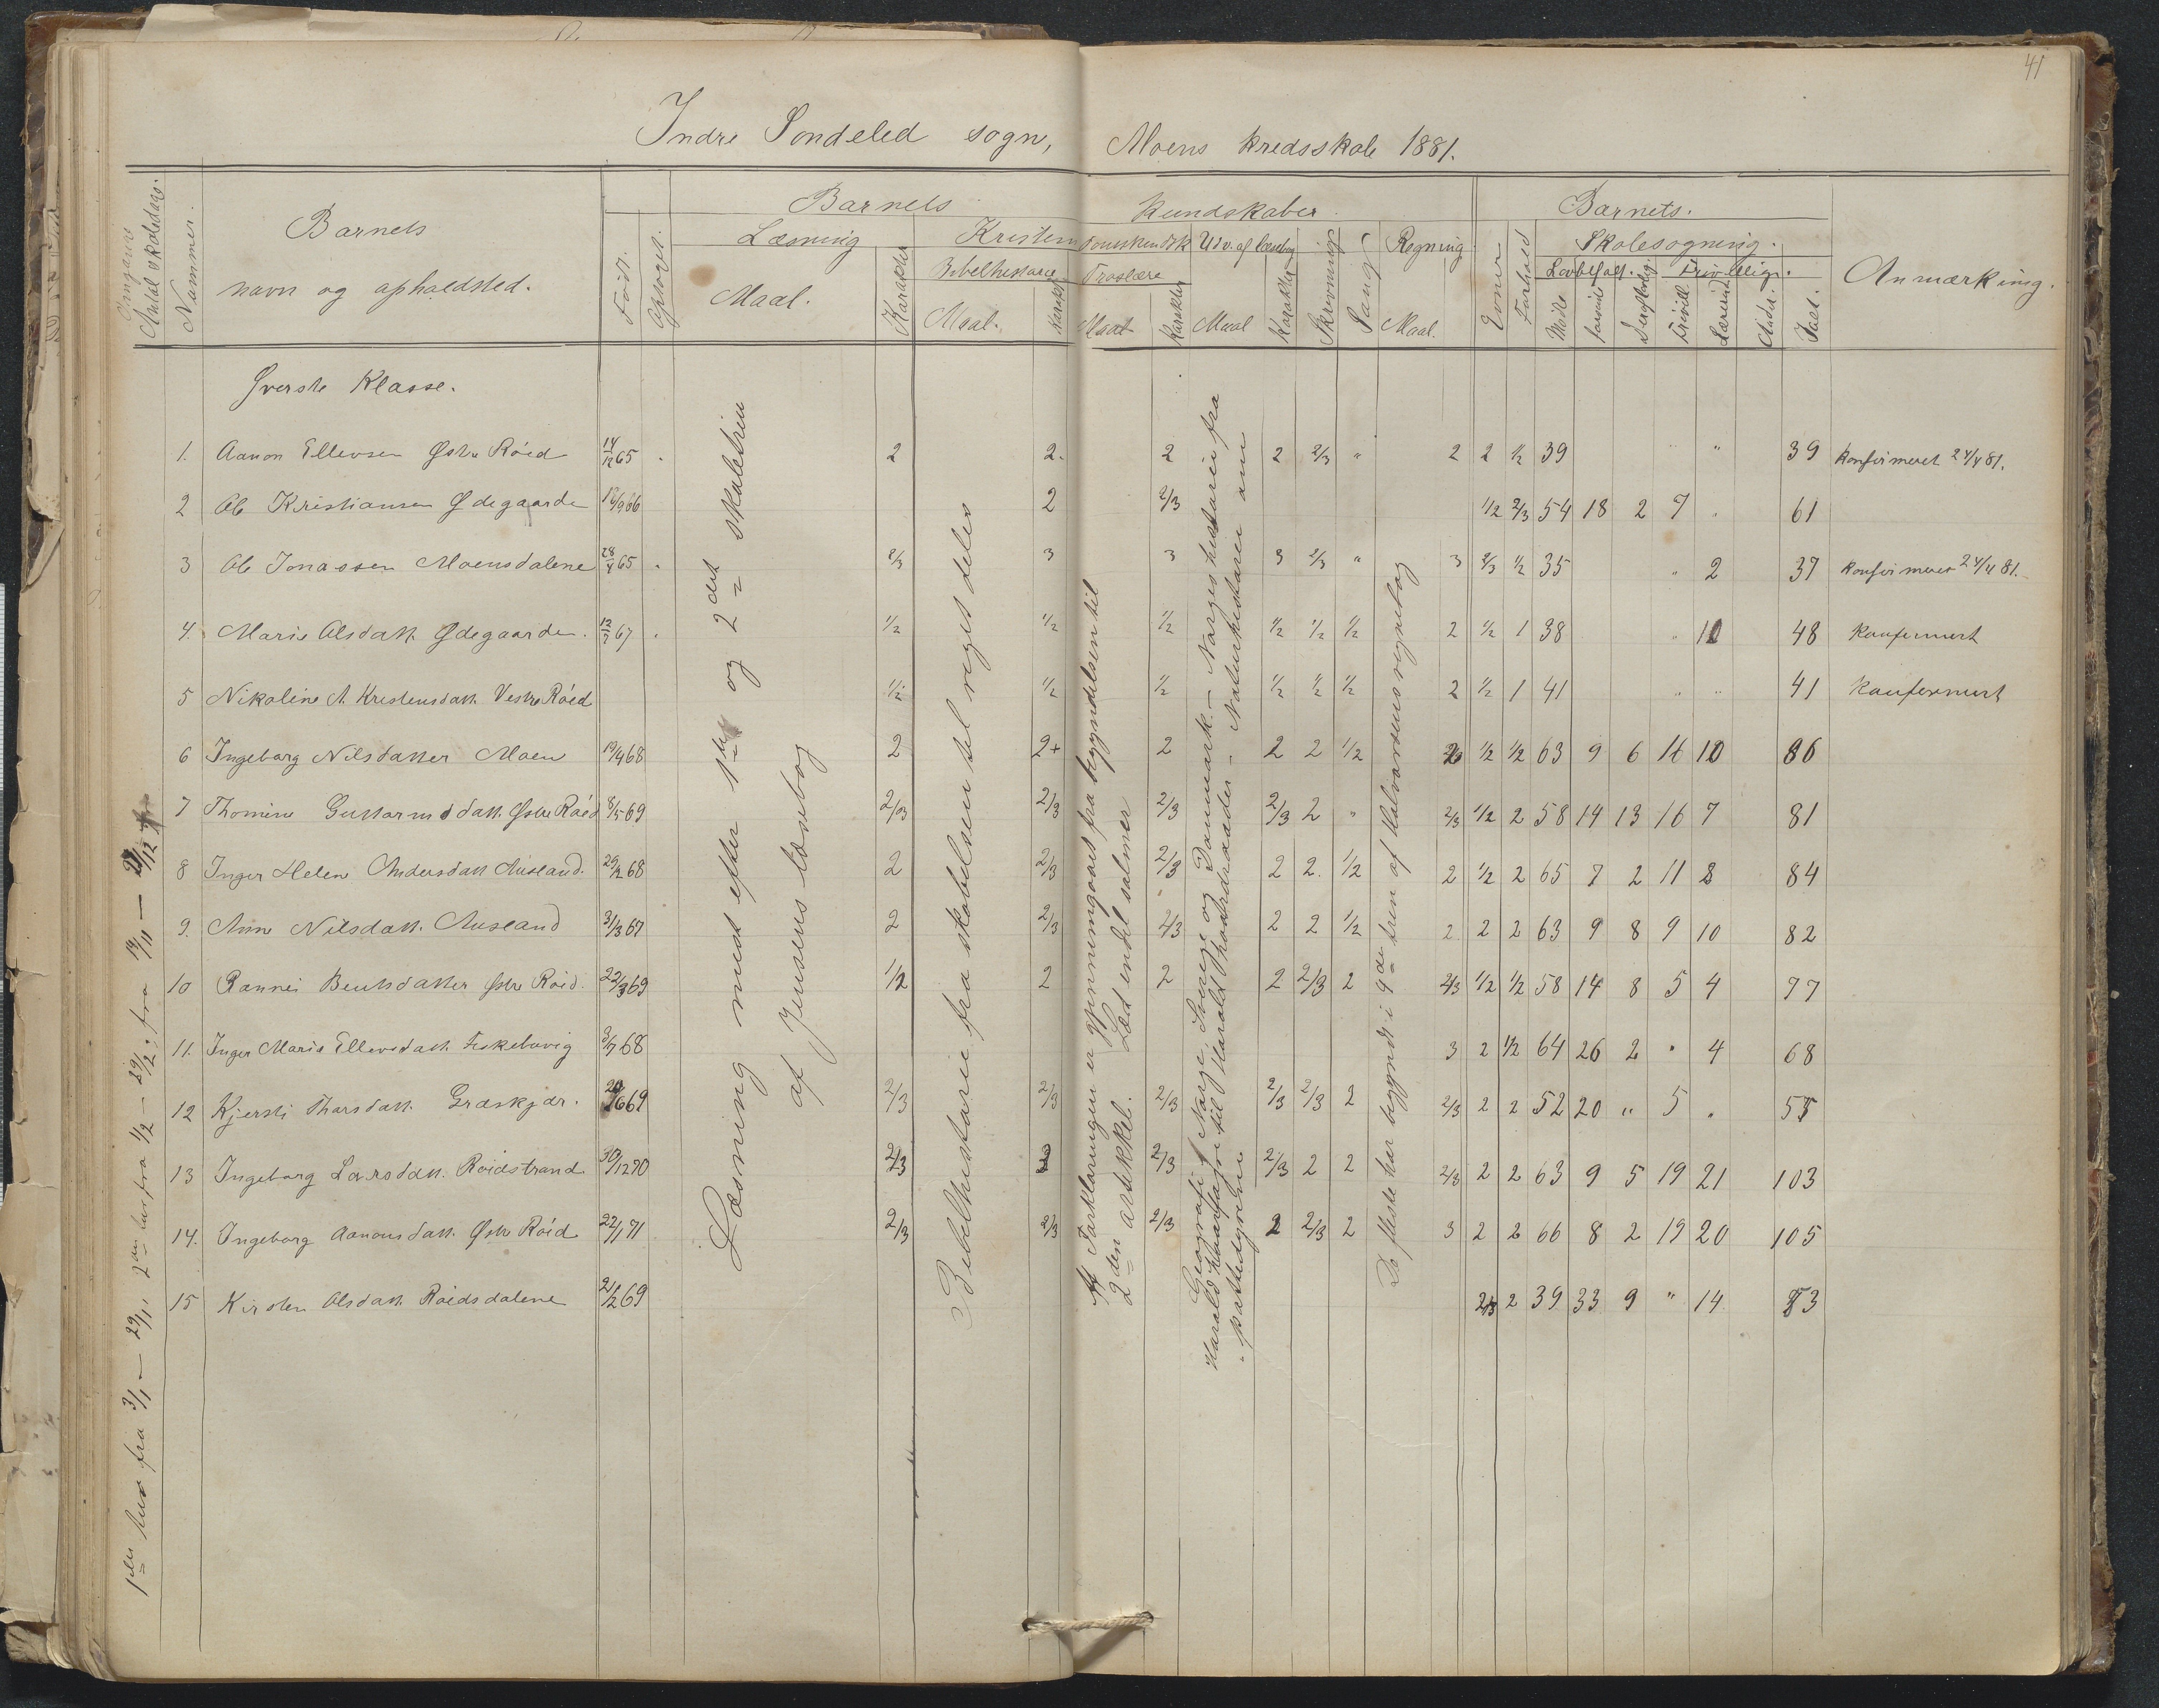 41
Indre Sondeled sogn, Moens kredsskole 1881.
Antal skoledage.
Nummer.
Barnets
navn og opholdsted.
Født.
Barnets kundskaber.
Læsning
Maal.
Karakter
Kristendomskundsk
Bibelhistorie
Maal.
Karakt
Troslære
Maal
Karakter
Udv. af læsebog
Maal
Karakter
Skrivning
Sang
Regning
Maal.
Evner
Forhold
Barnets.
Skolesøgning.
Lovbefalt.
Frivillig.
Mødte
Frivill
Andet.
Ialt.
Anmærkning.
Øverste Klasse.
1. Aanon Ellevsen Østre Røed 14/12 65 2 2. 2 2 2/3 " 2 2 1/2 39 " 39 Konfirmeret 24/4 81.
2 Ole Kristiansen Ødegaarde 66 2 2/3 1/2 2/3 54 18 2 7 61
3 Ole Jonassen Moensdalene 28/4 65 2/3 3 3 3 2/3 " 3 2/3 1/2 35 " 2 37 Konfirmeret 24/4 81.
4. Marie Olsdatt. Ødegaarden. 12/7 67 1/2 1/2 1/2 1/2 1/2 1/2 2 1/2 1 38 " 10 48 Konfirmert
5 Nikoline A. Kristensdatt. Vestre Røed 1/2 1/2 1/2 1/2 1/2 1/2 2 1/2 1 41 " " 41 Konfirmert
6 Ingeborg Nilsdatter Moen 19/4 68 2 2+ 2 2 2 1/2 2 1/2 1/2 63 9 6 16 10 86
7 Thomine Guttormsdatt. Østre Røed 8/5 69 2/3 2/3 2/3 2/3 2 " 2/3 1/2 2 58 14 13 16 7 81
8 Inger Helene Andersdatt Ausland. 29/12 68 2 2/3 2/3 2 2. 1/2 2 1/2 2 65 7 2 11 8 84
9. Anne Nilsdatt. Ausland 31/3 67 2 2/3 2/3 2 2 1/2 2 2 2 63 9 8 9 10 82
10 Rannei Bentsdatter Østre Roid. 22/3 69 1/2 2 2 2 2/3 2 2/3 1/2 1/2 58 14 8 5 4 77
11. Inger Marie Ellevsdatt. Fiskebuvig 3/7 68 3 2 1/2 64 26 2 " 4 68
12 Kjersti Thorsdatt. Græskjær. 69 2/3 2/3 2/3 2/3 2/3 2 2/3 2 2 52 20 " 5 " 57
13 Ingeborg Larsdatt. Roidstrand 30/12 70 2/3 2 2/3 2/3 2 2 2/3 2 2 63 9 5 19 21 103
14. Ingeborg Aanonsdatt. Østre Röid 22/1 71 2/3 2/3 2/3 2 2/3 2 3 2 2 66 8 2 19 20 105
15 Kirsten Olsdatt. Roidsdalene 21/2 69 2/3 2 39 33 9 " 14 53
Læsning mest efter 1ste og 2det skoletrin
af Jensens læsebog
Bibelhistorie fra skabelsen til riget deles
Af Forklaringen er gjennemgaaet fra begyndelsen til
2den artikkel. Læd endel salmer
Geografi af Norge, Sverige og Danmark. – Norges historie fra
Harald Haarfagre til Harald Haardraade – Naturhistorie om
pattedyrene
De fleste har begyndt i 4de trin af Halvorsens regnebog
1ste kurs fra 3/1 – 29/1, 2den kurs fra 1/2 – 29/2, fra 14/11 – 21/12